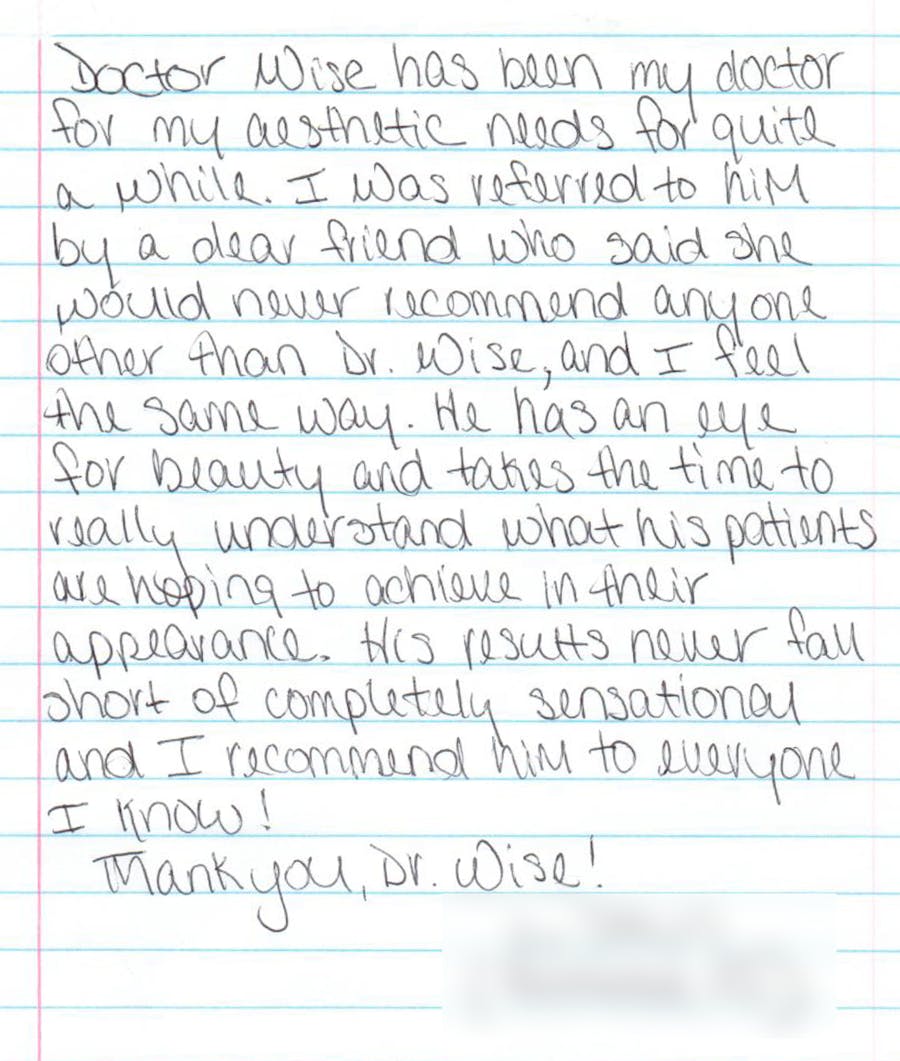 Doctor Wise has been my doctor
for my aesthetic needs for quite
a while. I was referred to him
by a dear friend who said she
would never recommend anyone
other than Dr. Wise, and I feel
the same way. He has an eye
for beauty and takes the time to
really understand what his patients
are hoping to achieve in their
appearance. His results never fall
short of completely sensational
and I recommend him to everyone
I know!
Thank you, Dr. Wise!